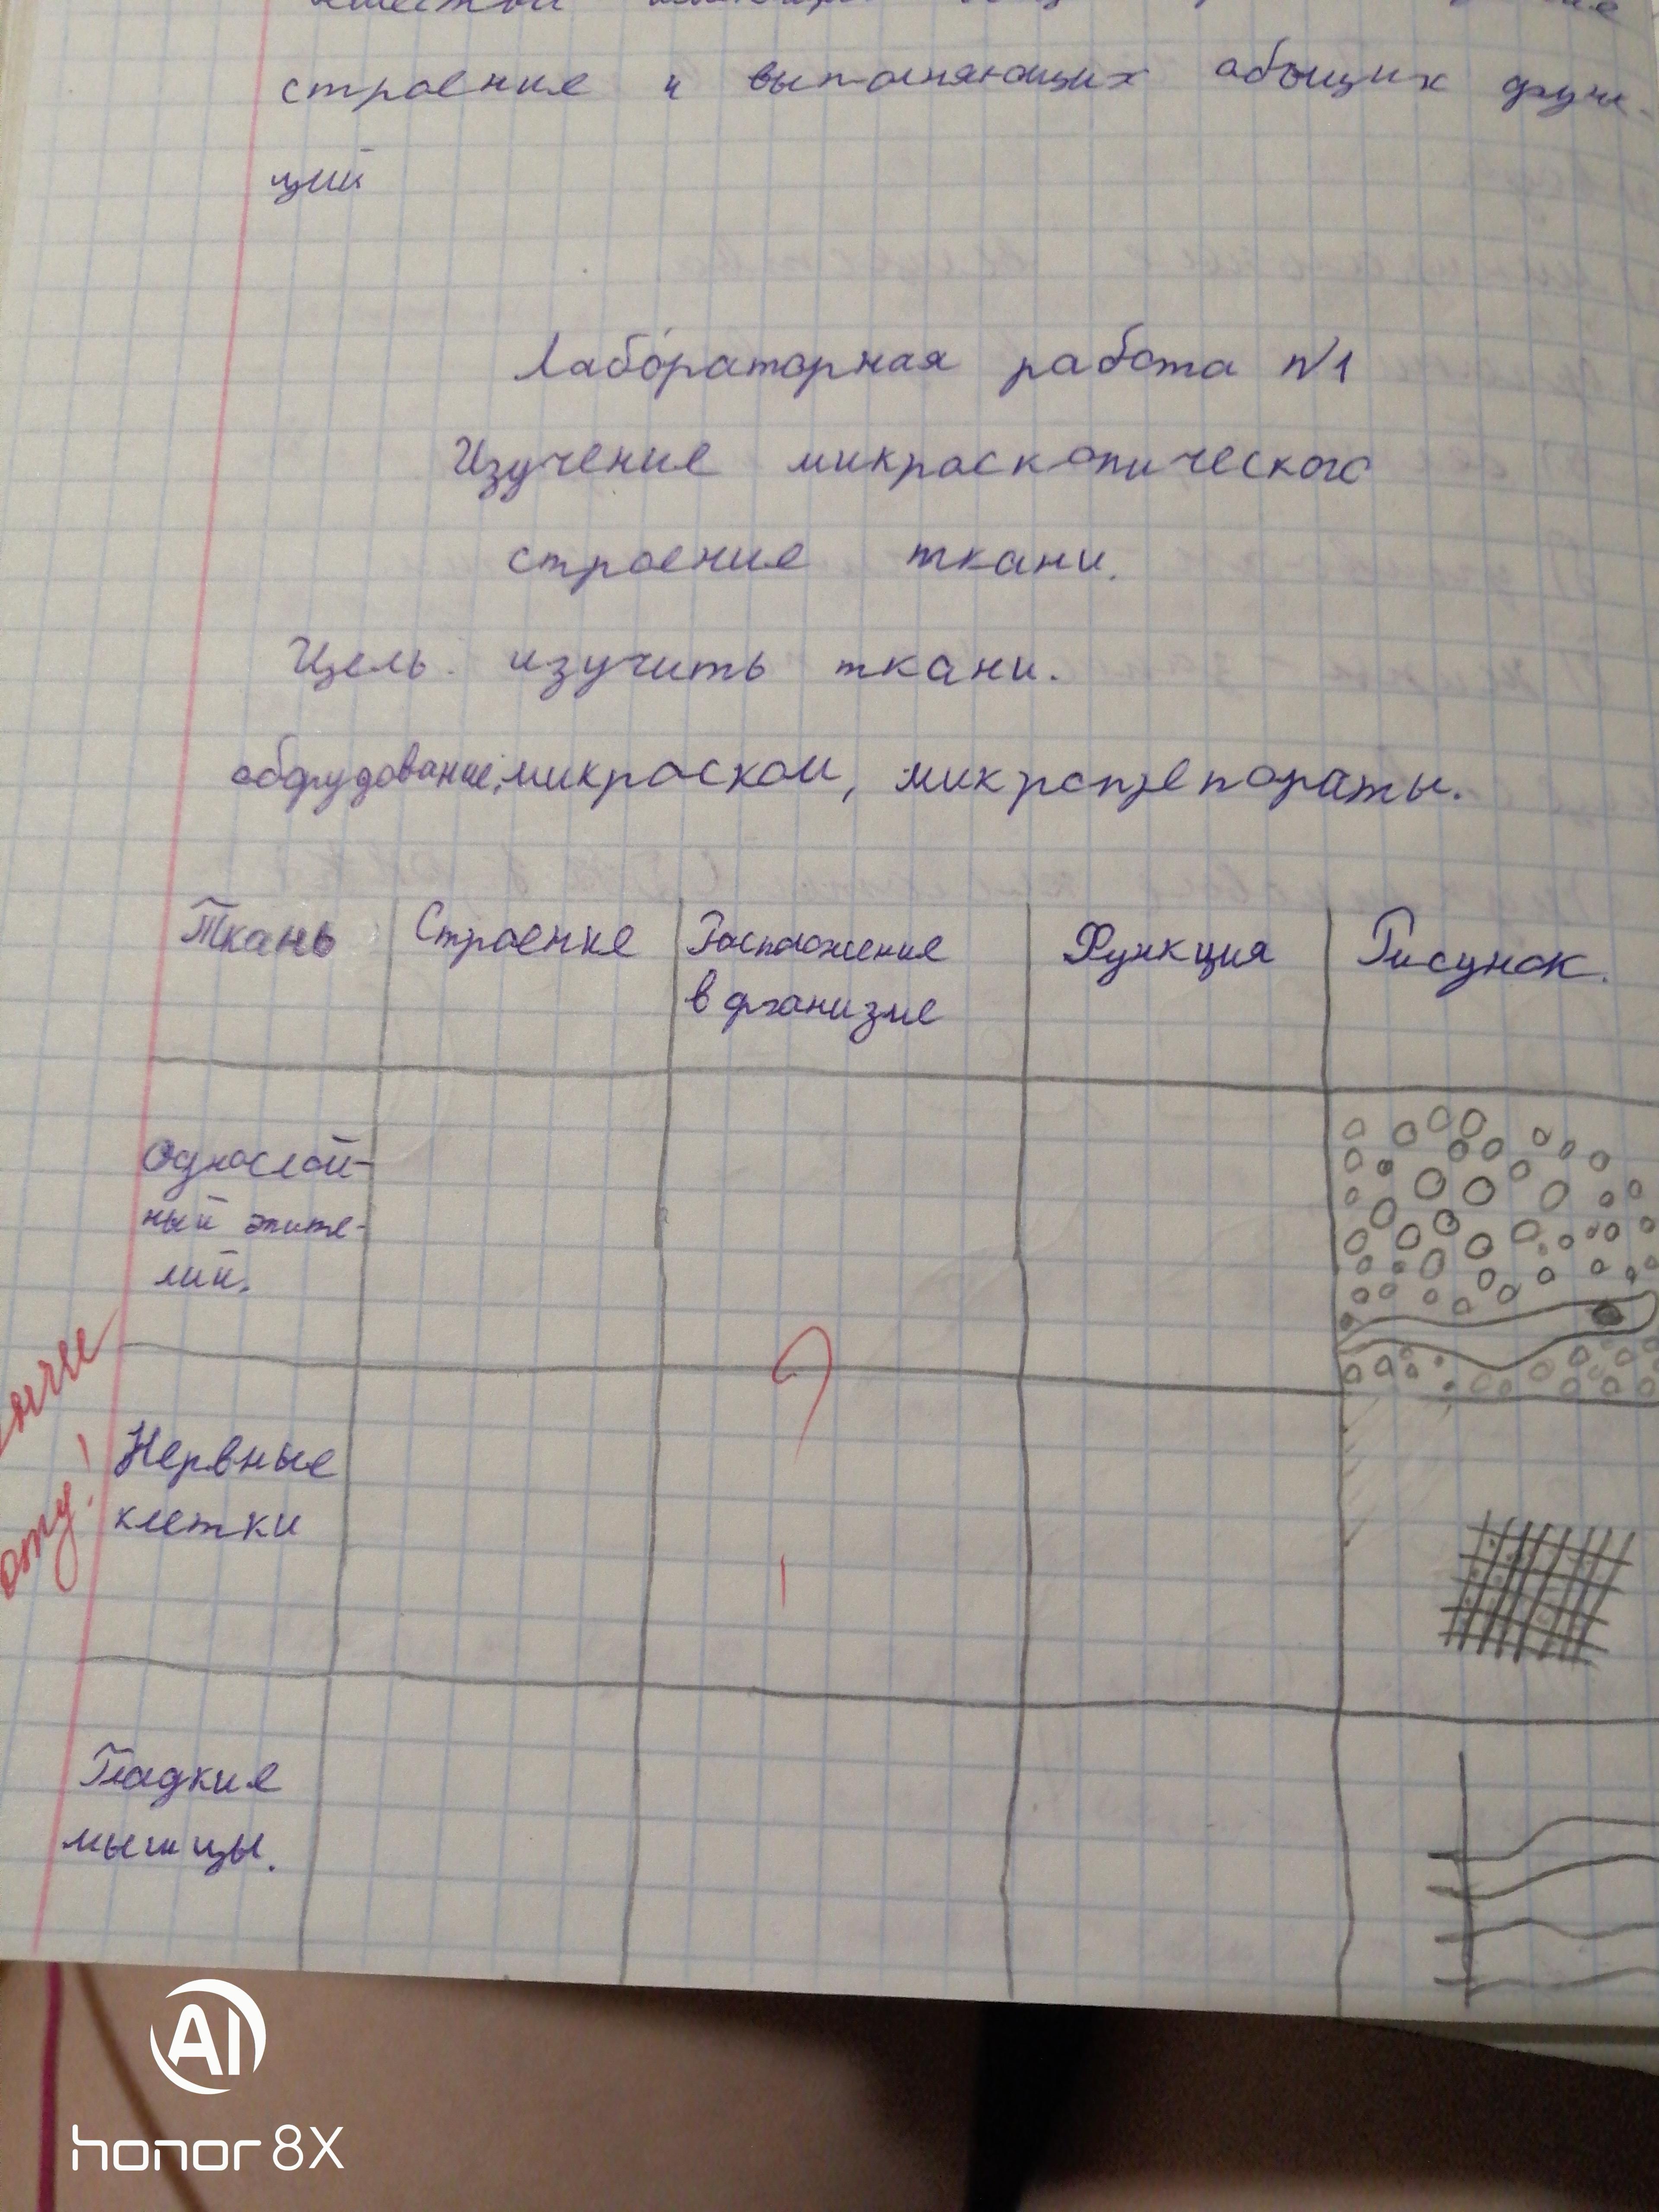 строение и выполняющих общих функ-
ций
Лабораторная работа №1
Изучение микроскопического
строение ткани.
Цель. изучить ткани.
оборудование: микроскоп, микропрепораты.
Ткань Строение Расположение Функция Рисунок.
в организме
Однослой-
ный эпите-
лий.
?
Нервные
клетки
Гладкие
мышцы.
AI
honor 8X